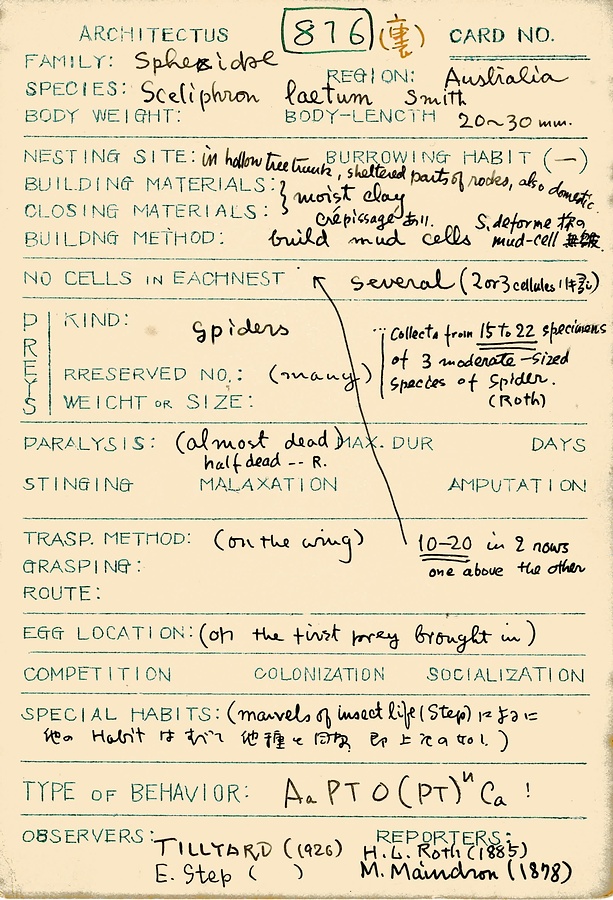 ARCHITECTUS 876 (裏) CARD NO.
FAMILY: Sphecidae
REGION: Australia
SPECIES: Sceliphron laetum Smith
BODY WEIGHT: BODY-LENGTH 20~30 mm.
NESTING SITE: in hollow tree trunk, sheltered parts of rocks, also domestic.
BURROWING HABIT (—)
BUILDING MATERIALS: } moist clay
CLOSING MATERIALS:
crépissage あり. S. deforme
BUILDNG METHOD: build mud cells mud-cell
NO CELLS IN EACHNEST several (2 or 3 cellules
PREYS
KIND: spiders
... Collects from 15 to 22 specimens
of 3 moderate-sized
species of spider.
(Roth)
RRESERVED NO.: (many)
WEICHT OR SIZE:
PARALYSIS: (almost dead) MAX. DUR DAYS
half dead -- R.
STINGING MALAXATION AMPUTATION
TRASP. METHOD: (on the wing) 10-20 in 2 rows
GRASPING: one above the other
ROUTE:
EGG LOCATION: (on the first prey brought in)
COMPETITION COLONIZATION SOCIALIZATION
SPECIAL HABITS: (marvels of insect life (Step) によるに
他の Habit はすべて他種と同様
TYPE OF BEHAVIOR: Aa PTO(PT)ⁿ Ca !
OBSERVERS: TILLYARD (1926)
E. Step ( )
REPORTERS:
H. L. Roth (1885)
M. Maindron (1878)